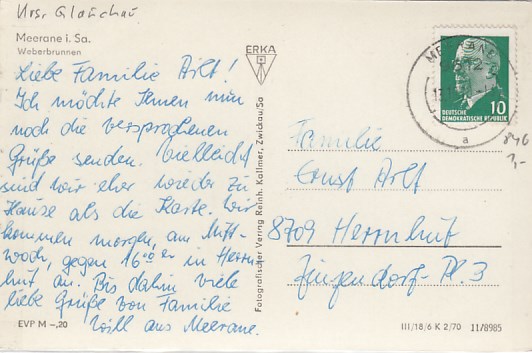 Krs. Glauchau
Meerane i. Sa.
Weberbrunnen
Liebe Familie Arlt!
Ich möchte Ihnen nun
noch die versprochenen
Grüße senden. Vielleicht
sind wir eher wieder zu
Hause als die Karte. Wir
kommen morgen, am Mitt-
woch, gegen 16⁰⁰ er in Herrn-
hut an. Bis dahin viele
liebe Grüße von Familie
Will aus Meerane.
EVP M –,20
ERKA
Fotografischer Verlag Reinh. Kallmer, Zwickau/Sa
MEERANE
10
DEUTSCHE
DEMOKRATISCHE REPUBLIK
a
Familie
Ernst Arlt
8709 Herrnhut
Zinzendorf-Pl. 3
III/18/6 K 2/70 11/8985